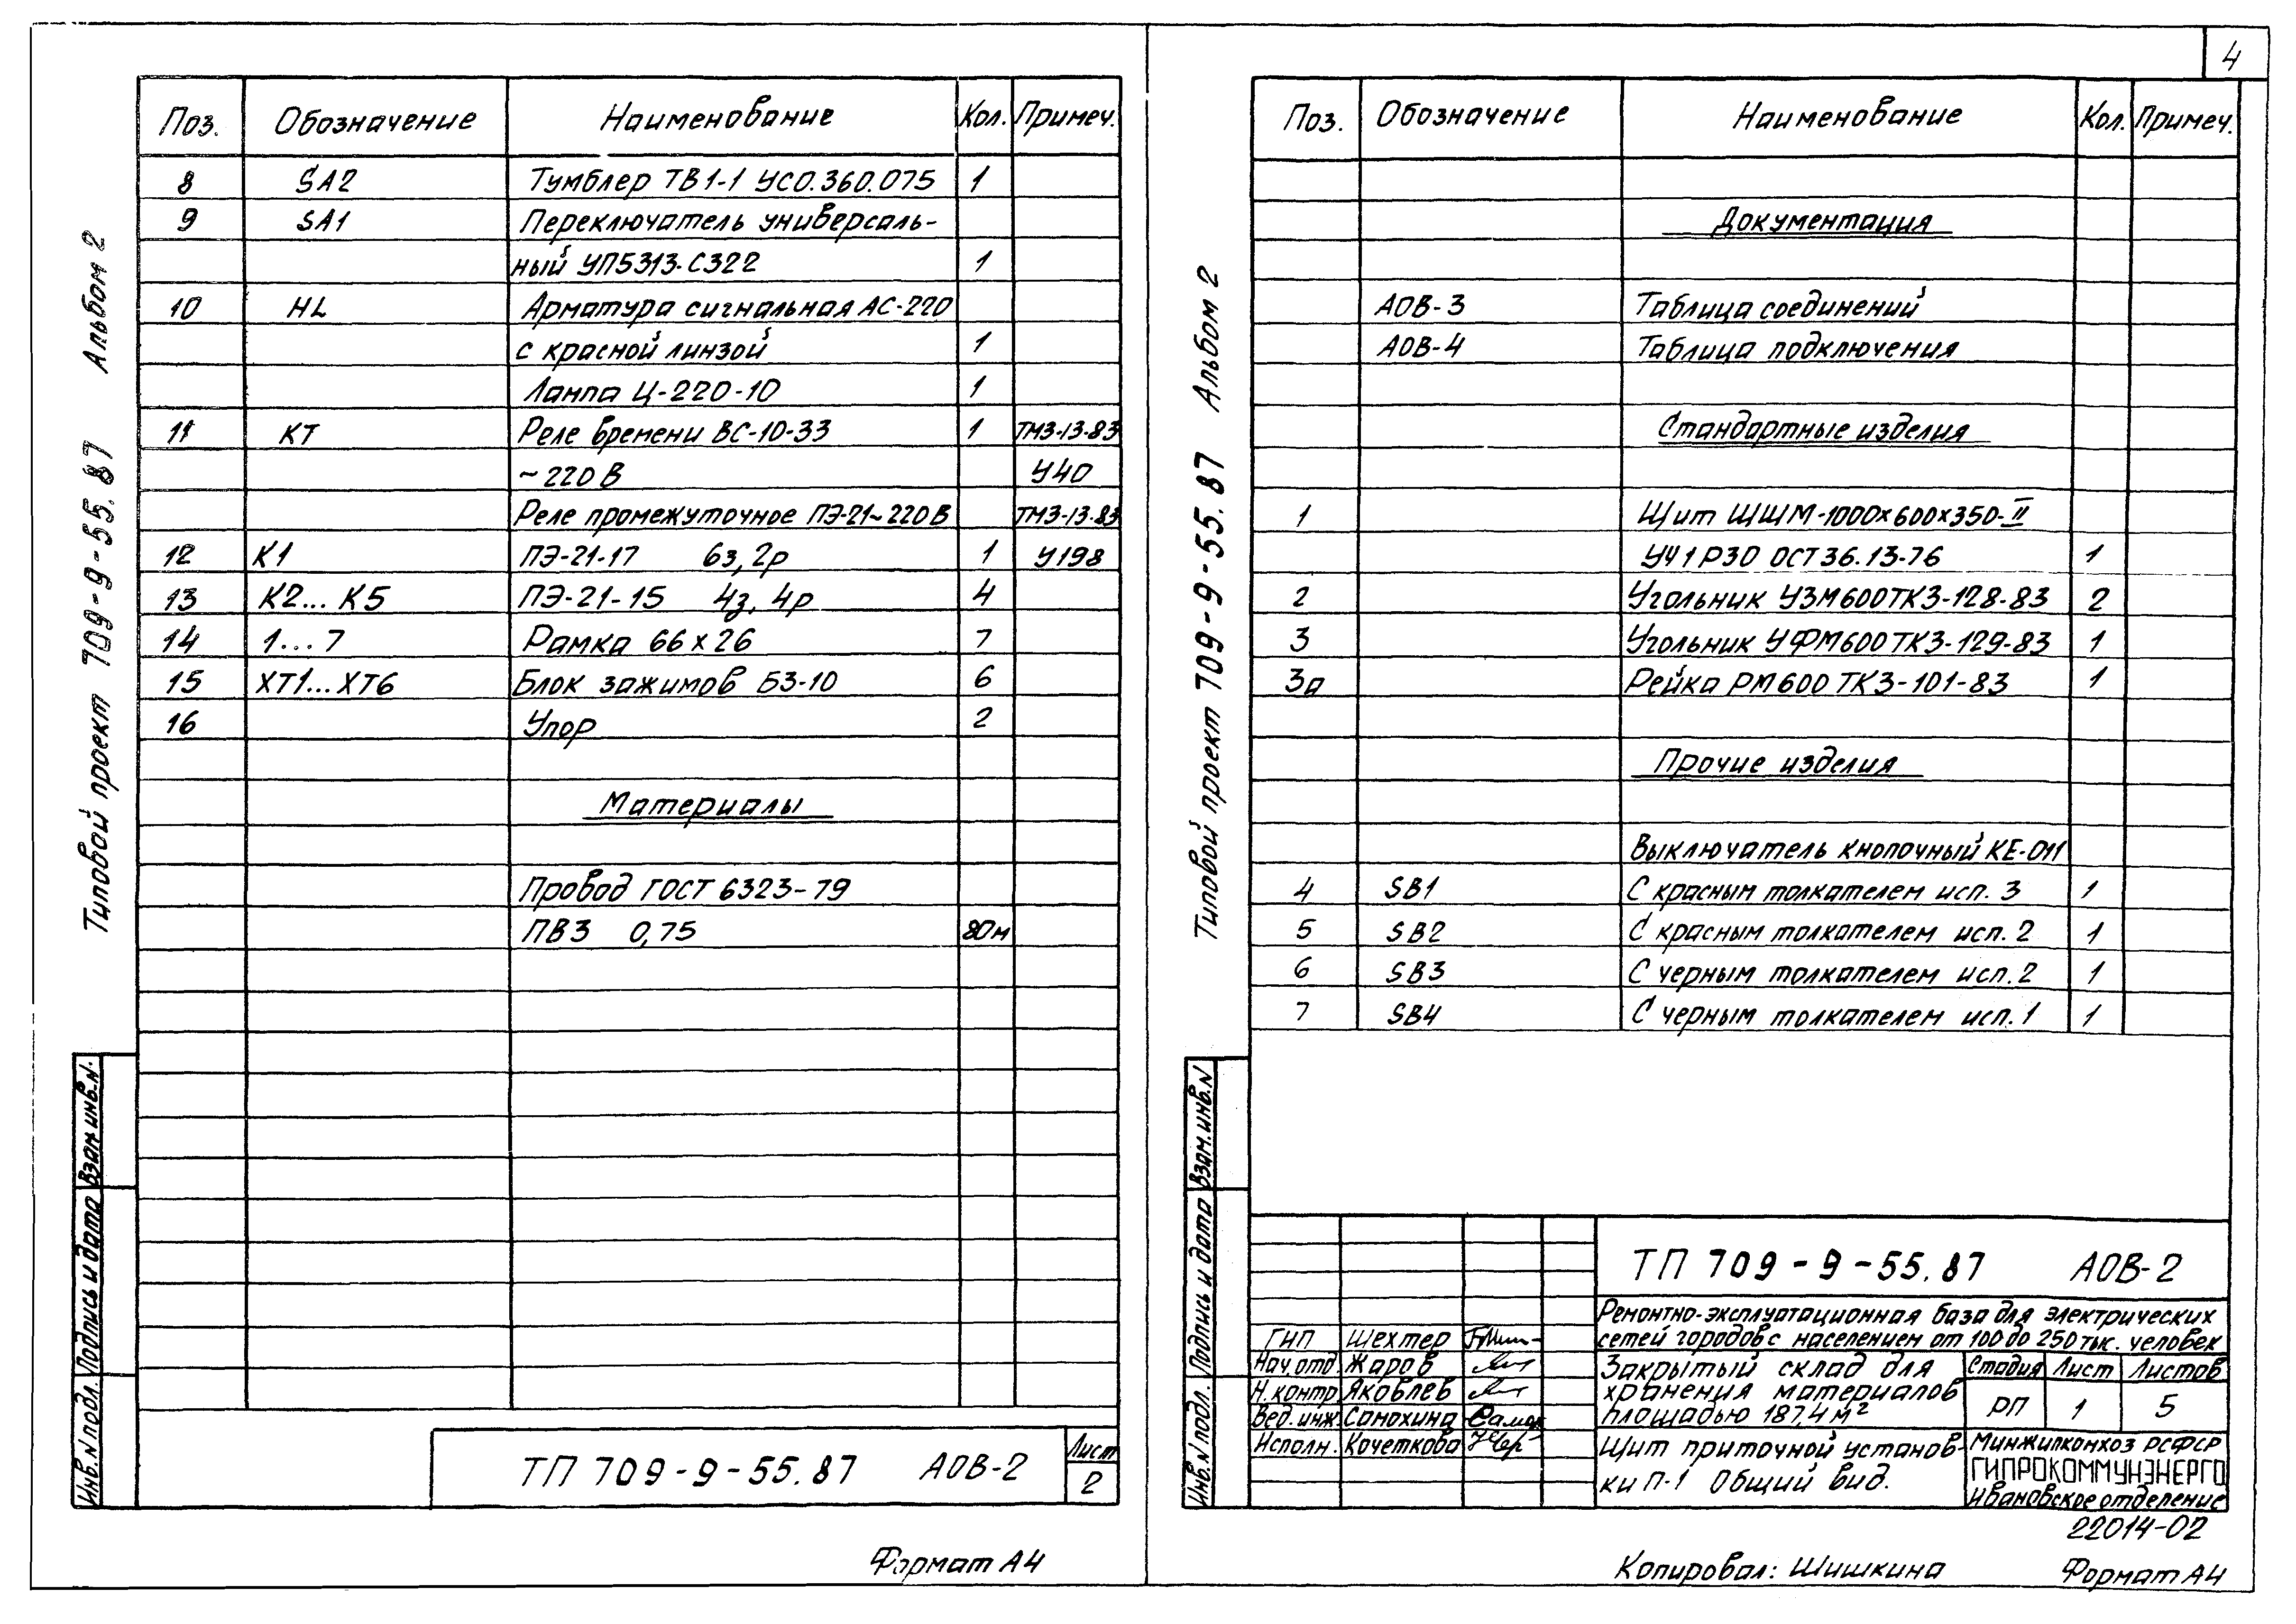 4
Типовой проект 709-9-55.87 Альбом 2
Поз. Обозначение Наименование Кол. Примеч.
8 SA2 Тумблер ТВ1-1 УСО.360.075 1
9 SA1 Переключатель универсаль-
ный УП5313-С322 1
10 HL Арматура сигнальная АС-220
с красной линзой 1
Лампа Ц-220-10 1
11 КТ Реле времени ВС-10-33 1 ТМ3-13-83
~220В У40
Реле промежуточное ПЭ-21~220В ТМ3-13-83
12 К1 ПЭ-21-17 6з,2р 1 У198
13 К2...К5 ПЭ-21-15 4з,4р 4
14 1...7 Рамка 66х26 7
15 ХТ1...ХТ6 Блок зажимов БЗ-10 6
16 Упор 2
Материалы
Провод ГОСТ 6323-79
ПВ3 0,75 80м
Взам инв.N.
Подпись и дата
Инв.N подл.
ТП 709-9-55.87 АОВ-2 Лист
2
Формат А4
Типовой проект 709-9-55.87 Альбом 2
Поз. Обозначение Наименование Кол. Примеч.
Документация
АОВ-3 Таблица соединений
АОВ-4 Таблица подключения
Стандартные изделия
1 Щит ЩШМ-1000х600х350-II
УЧ1Р30 ОСТ36.13-76 1
2 Угольник УЗМ600ТК3-128-83 2
3 Угольник УФМ600ТК3-129-83 1
3а Рейка РМ600 ТК3-101-83 1
Прочие изделия
Выключатель кнопочный КЕ-011
4 SB1 С красным толкателем исп. 3 1
5 SB2 С красным толкателем исп. 2 1
6 SB3 С черным толкателем исп. 2 1
7 SB4 С черным толкателем исп. 1 1
Взам.инв.N
Подпись и дата
Инв.N подл.
ТП 709-9-55.87 АОВ-2
Ремонтно-эксплуатационная база для электрических
сетей городов с населением от 100 до 250 тыс. человек
ГИП Шехтер
Нач.отд. Жаров
Н.контр. Яковлев
Вед.инж. Самохина
Исполн. Кочеткова
Закрытый склад для
хранения материалов
площадью 187,4м²
Стадия Лист Листов
РП 1 5
Щит приточной установ-
ки П-1 Общий вид.
Минжилкомхоз РСФСР
ГИПРОКОММУНЭНЕРГО
Ивановское отделение
22014-02
Копировал: Шишкина Формат А4